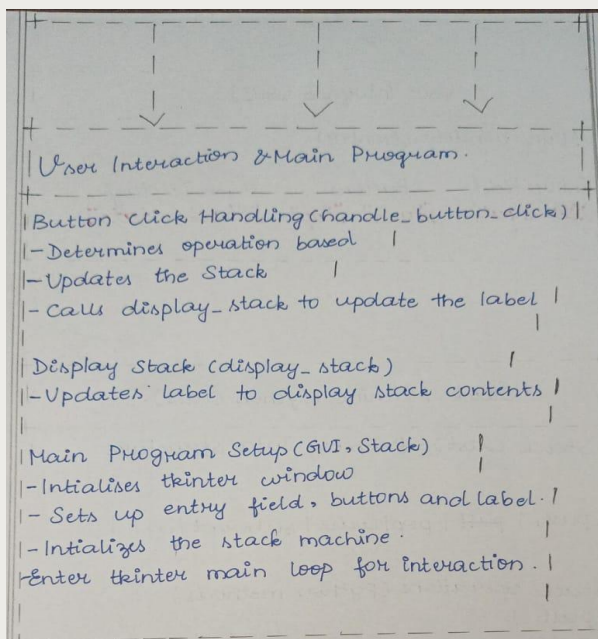 User Interaction & Main Program.
Button Click Handling (handle_button_click)
- Determines operation based
- Updates the Stack
- Calls display_stack to update the label
Display Stack (display_stack)
- Updates label to display stack contents
Main Program Setup (GUI, Stack)
- Intialises tkinter window
- Sets up entry field, buttons and label.
- Intializes the stack machine.
- Enter tkinter main loop for interaction.